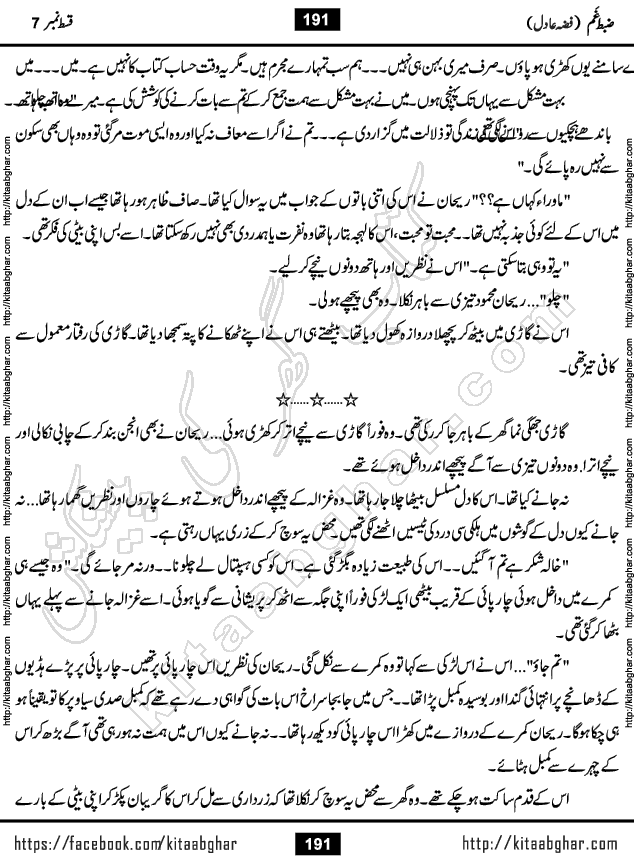 ضبطِ غم (فضہ عادل)
191
قسط نمبر 7
ے سامنے یوں کھڑی ہو پاؤں۔ صرف میری بہن ہی نہیں۔۔۔ ہم سب تمہارے مجرم ہیں۔ مگر یہ وقت حساب کتاب کا نہیں ہے۔ میں۔۔۔ میں
بہت مشکل سے یہاں تک پہنچی ہوں۔ میں نے بہت مشکل سے ہمت جمع کر کے تم سے بات کرنے کی کوشش کی ہے۔ میرے
باندھے ہچکیوں سے زندگی تو ذلالت میں گزار دی ہے۔۔۔ تم نے اگر اسے معاف نہ کیا اور وہ ایسی موت مر گئی تو وہ وہاں بھی سکون
سے نہیں رہ پائے گی۔"
"ماوراء کہاں ہے؟؟" ریحان نے اس کی اتنی باتوں کے جواب میں یہ سوال کیا تھا۔ صاف ظاہر ہو رہا تھا جیسے اب ان کے دل
میں اس کے لئے کوئی جذبہ نہیں تھا۔۔ محبت تو محبت، اس کا لہجہ بتا رہا تھا وہ نفرت یا ہمدردی بھی نہیں رکھ سکتا تھا۔ اسے بس اپنی بیٹی کی فکر تھی۔
"یہ تو وہی بتا سکتی ہے۔" اس نے نظریں اور ہاتھ دونوں نیچے کر لیے۔
"چلو"... ریحان محمود تیزی سے باہر نکلا۔ وہ بھی پیچھے ہو لی۔
اس نے گاڑی میں بیٹھ کر پچھلا دروازہ کھول دیا تھا۔ بیٹھتے ہی اس نے اپنے ٹھکانے کا پتہ سمجھا دیا تھا۔ گاڑی کی رفتار معمول سے
کافی تیز تھی۔
☆......☆......☆
گاڑی جھگی نما گھر کے باہر جا کر رکی تھی۔ وہ فوراً گاڑی سے نیچے اتر کر کھڑی ہوئی... ریحان نے بھی انجن بند کر کے چابی نکالی اور
نیچے اترا۔ وہ دونوں تیزی سے آگے پیچھے اندر داخل ہوئے تھے۔
نہ جانے کیا تھا۔ اس کا دل مسلسل بیٹھا چلا جا رہا تھا۔ وہ غزالہ کے پیچھے اندر داخل ہوتے ہوئے چاروں اور نظریں گھما رہا تھا... نہ
جانے کیوں دل کے گوشوں میں ہلکی سی درد کی ٹیسیں اٹھنے لگی تھیں۔ محض یہ سوچ کر کے زری یہاں رہتی ہے۔
"خالہ شکر ہے تم آ گئیں۔۔۔ اس کی طبیعت زیادہ بگڑ گئی ہے۔ اس کو کسی ہسپتال لے چلو نا۔۔ ورنہ مر جائے گی۔" وہ جیسے ہی
کمرے میں داخل ہوئی چارپائی کے قریب بیٹھی ایک لڑکی فوراً اپنی جگہ سے اٹھ کر پریشانی سے گویا ہوئی۔ اسے غزالہ جانے سے پہلے یہاں
بٹھا کر گئی تھی۔
"تم جاؤ"... اس نے اس لڑکی سے کہا تو وہ کمرے سے نکل گئی۔ ریحان کی نظریں اس چارپائی پر تھیں۔ چارپائی پر پڑے ہڈیوں
کے ڈھانچے پر انتہائی گندا اور بوسیدہ کمبل پڑا تھا۔۔ جس میں جا بجا سراخ اس بات کی گواہی دے رہے تھے کہ کمبل صدی سیاوپر کا تو یقیناً ہو
ہی چکا ہو گا۔ ریحان کمرے کے دروازے میں کھڑا اس چارپائی کو دیکھ رہا تھا۔۔ نہ جانے کیوں اس میں ہمت نہ ہو رہی تھی آگے بڑھ کر اس
کے چہرے سے کمبل ہٹائے۔
اس کے قدم ساکت ہو چکے تھے۔ وہ گھر سے محض یہ سوچ کر نکلا تھا کہ زرداری سے مل کر اس کا گریبان پکڑ کر اپنی بیٹی کے بارے
کتاب گھر کی پیشکش
kitaabghar.com
http://kitaabghar.com http://kitaabghar.com http://kitaabghar.com http://kitaabghar.com http://kitaabghar.com http://kitaabghar.com
http://kitaabghar.com http://kitaabghar.com http://kitaabghar.com http://kitaabghar.com http://kitaabghar.com http://kitaabghar.com
https://facebook.com/kitaabghar
191
http://kitaabghar.com